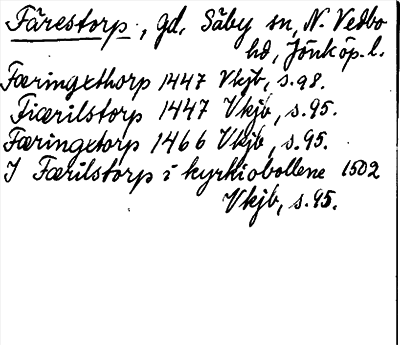 Färestorp, gd, Säby sn, N. Vedbo
hd, Jönköp. l.
Færingxthorp 1447 Vkjb, s. 98.
Fiærilstorp 1447 Vkjb, s. 95.
Færingxtorp 1466 Vkjb, s. 95.
I Færilstorp i kyrkiobollene 1502
Vkjb, s. 95.